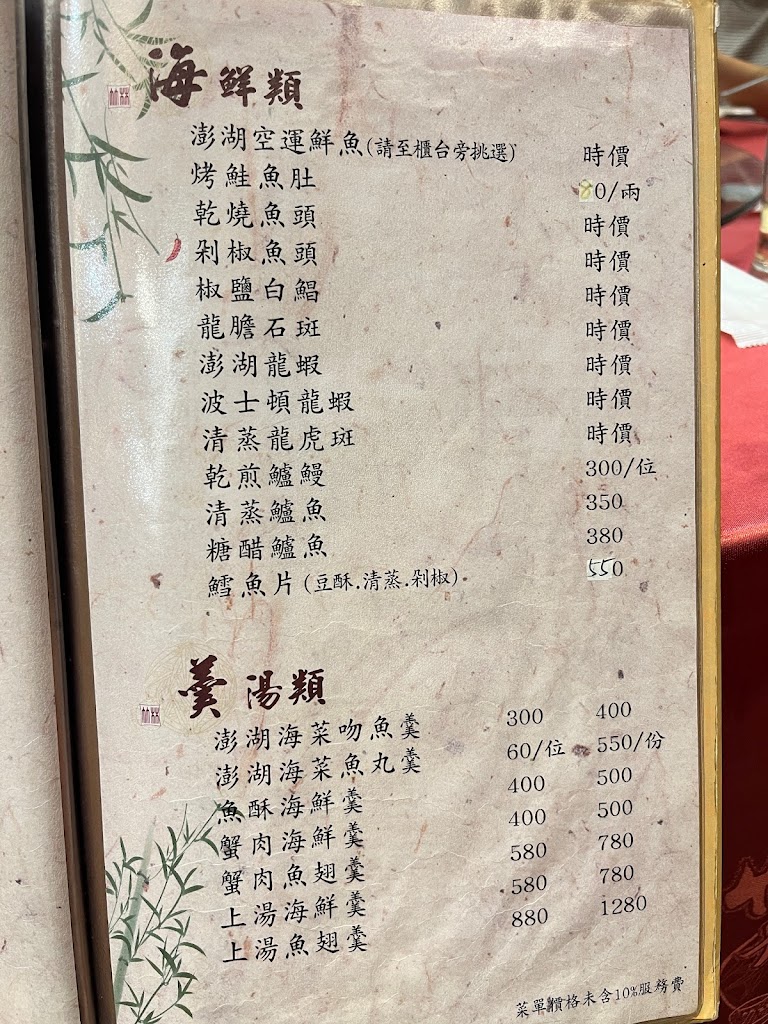 海鮮類
澎湖空運鮮魚(請至櫃台旁挑選) 時價
烤鮭魚肚 80/兩
乾燒魚頭 時價
剁椒魚頭 時價
椒鹽白鯧 時價
龍膽石斑 時價
澎湖龍蝦 時價
波士頓龍蝦 時價
清蒸龍虎斑 時價
乾煎鱸鰻 300/位
清蒸鱸魚 350
糖醋鱸魚 380
鱈魚片(豆酥.清蒸.剁椒) 550
羹湯類
澎湖海菜吻魚羹 300 400
澎湖海菜魚丸羹 60/位 550/份
魚酥海鮮羹 400 500
蟹肉海鮮羹 400 500
蟹肉魚翅羹 580 780
上湯海鮮羹 580 780
上湯魚翅羹 880 1280
菜單價格未含10%服務費